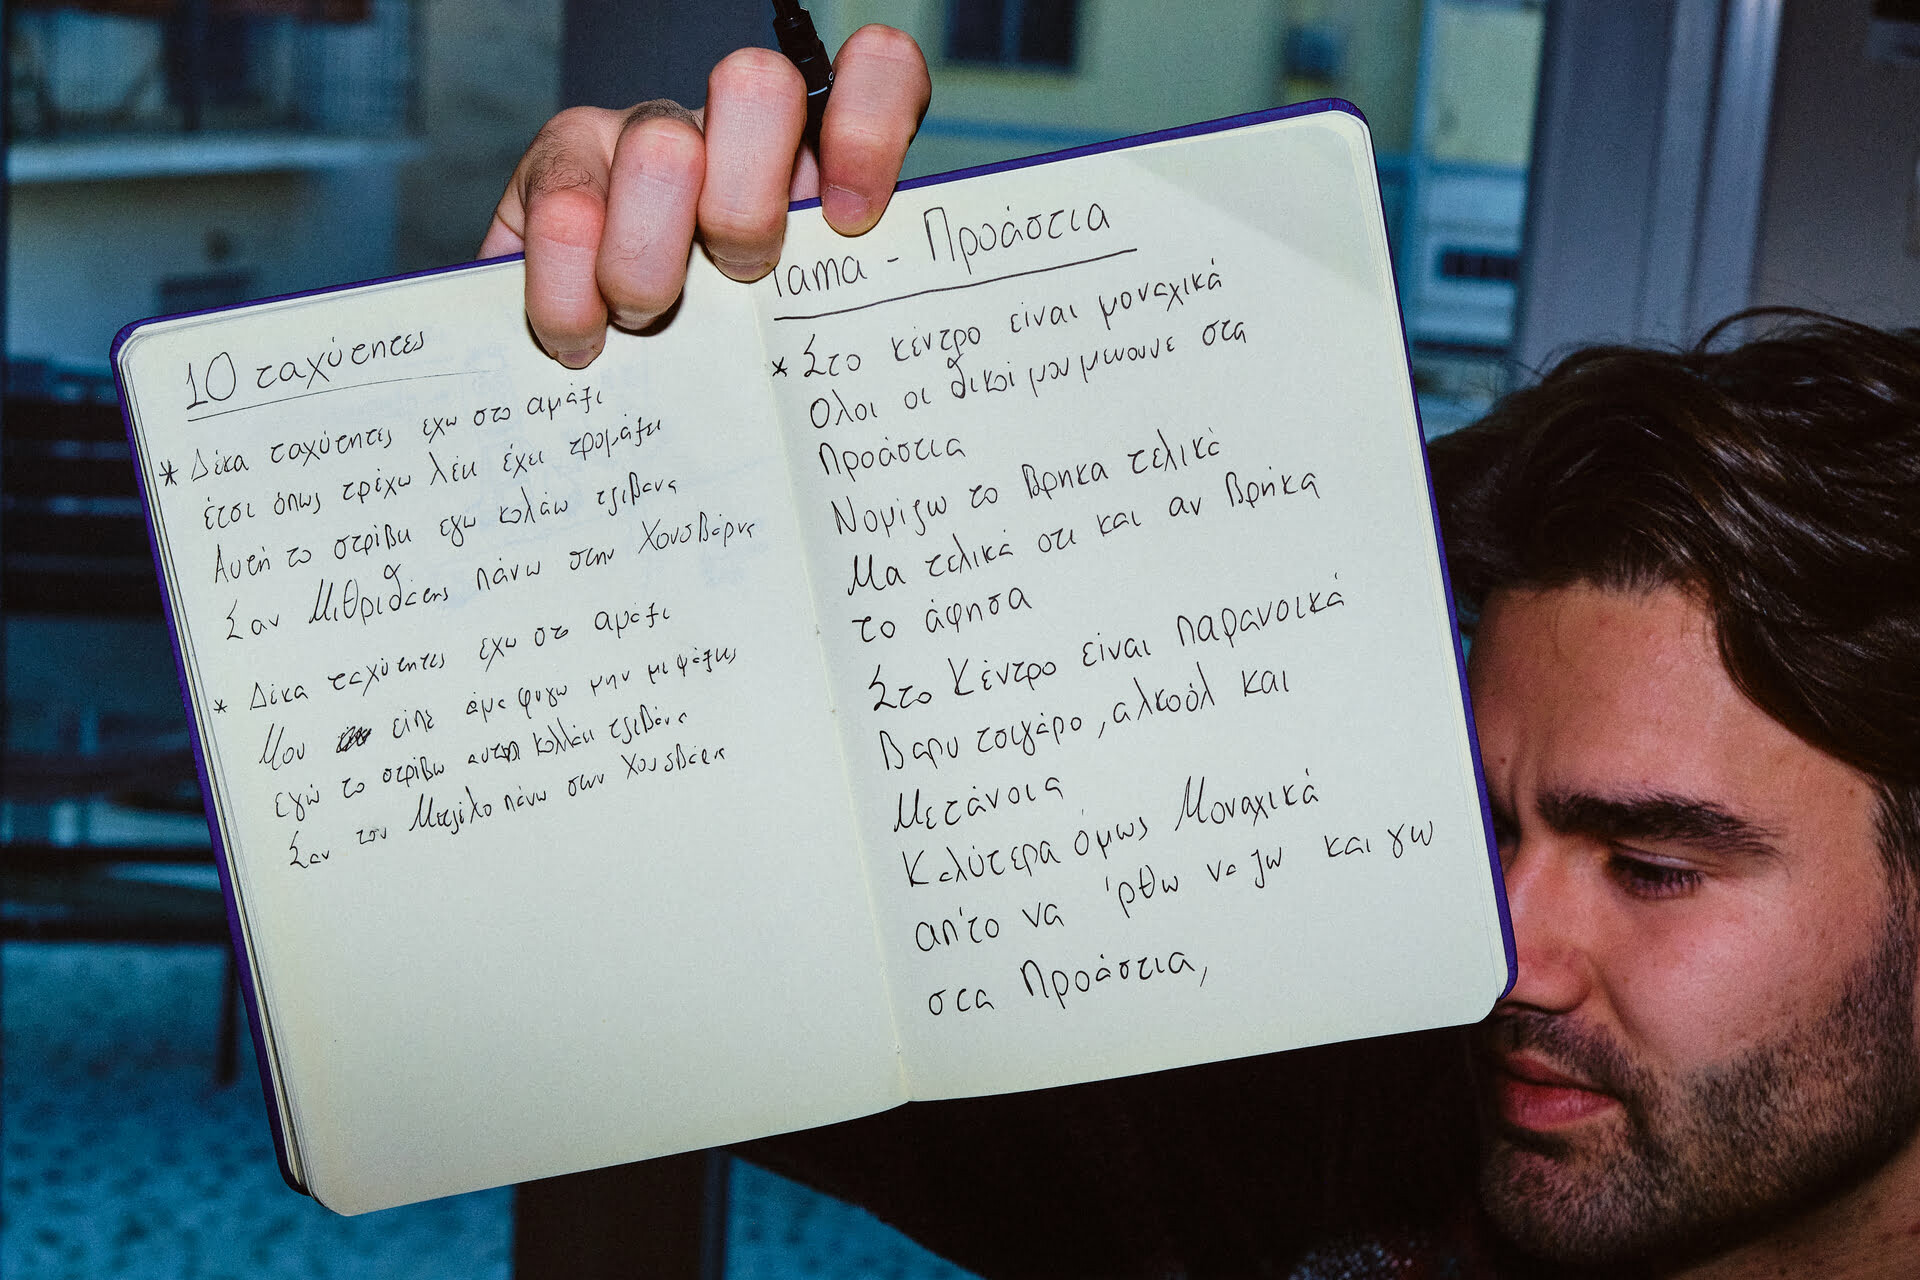 10 ταχύτητες
* Δέκα ταχύτητες έχω στο αμάξι
έτσι όπως τρέχω λέει έχει τρομάξει
Αυτή το στρίβει εγω κολάω τζιβάνα
Σαν Μιθριδάτης πάνω στην Χουσβάρνα
* Δέκα ταχύτητες έχω στο αμάξι
Μου είπε άμα φύγω μην με ψάξεις
εγώ το στρίβω αυτή κολλάει τζιβάνα
Σαν τον πάνω στην Χουσβάρνα
Tama - Προάστια
* Στο κέντρο είναι μοναχικά
Ολοι οι δικοί μου μένουνε στα
Προάστια
Νομίζω το βρηκα τελικά
Μα τελικά οτι και αν βρήκα
το άφησα
Στο Κέντρο είναι παρανοικά
Βαρυ τσιγάρο, αλκοόλ και
Μετάνοια
Καλύτερα όμως Μοναχικά
απ'το να 'ρθω να ζω και γω
στα Προάστια,